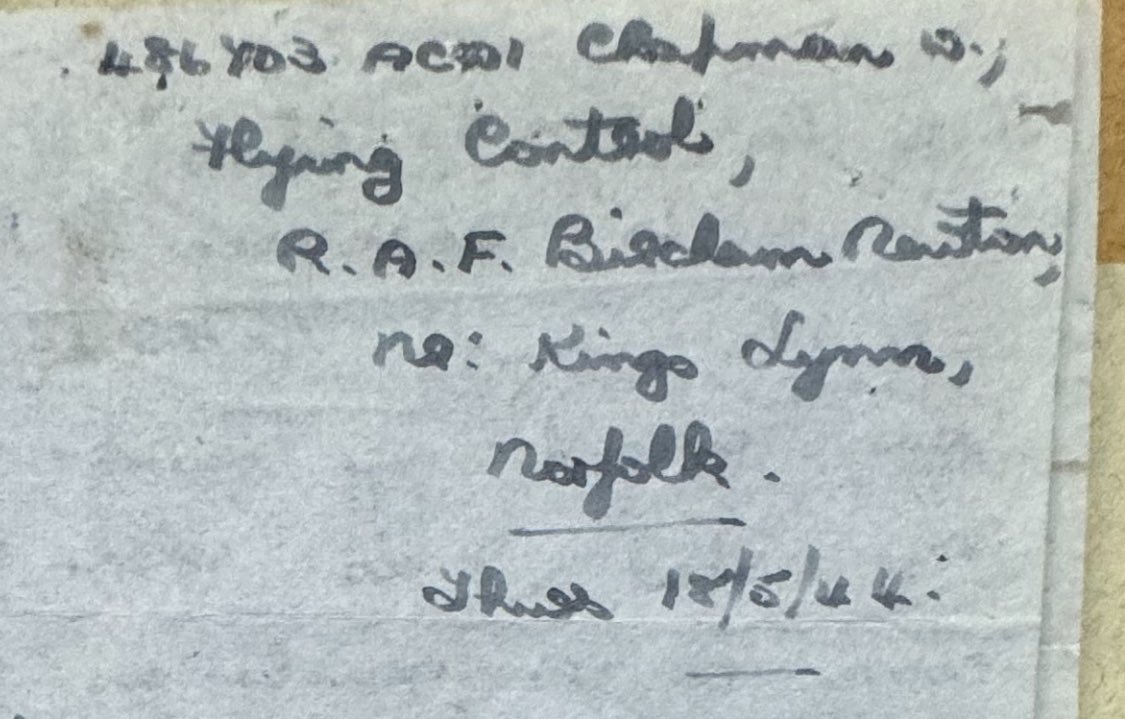 ACW1 Chapman W.,
Flying Control,
R.A.F. Bircham Newton,
nr: Kings Lynn,
Norfolk.
Thurs 18/5/44.